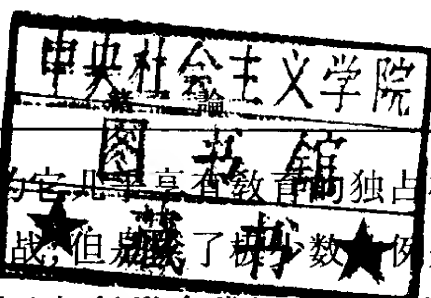 中央社会主义学院
緒論
图书馆
为它几乎享有教育的独占
藏书
战，但是除了极少数 例